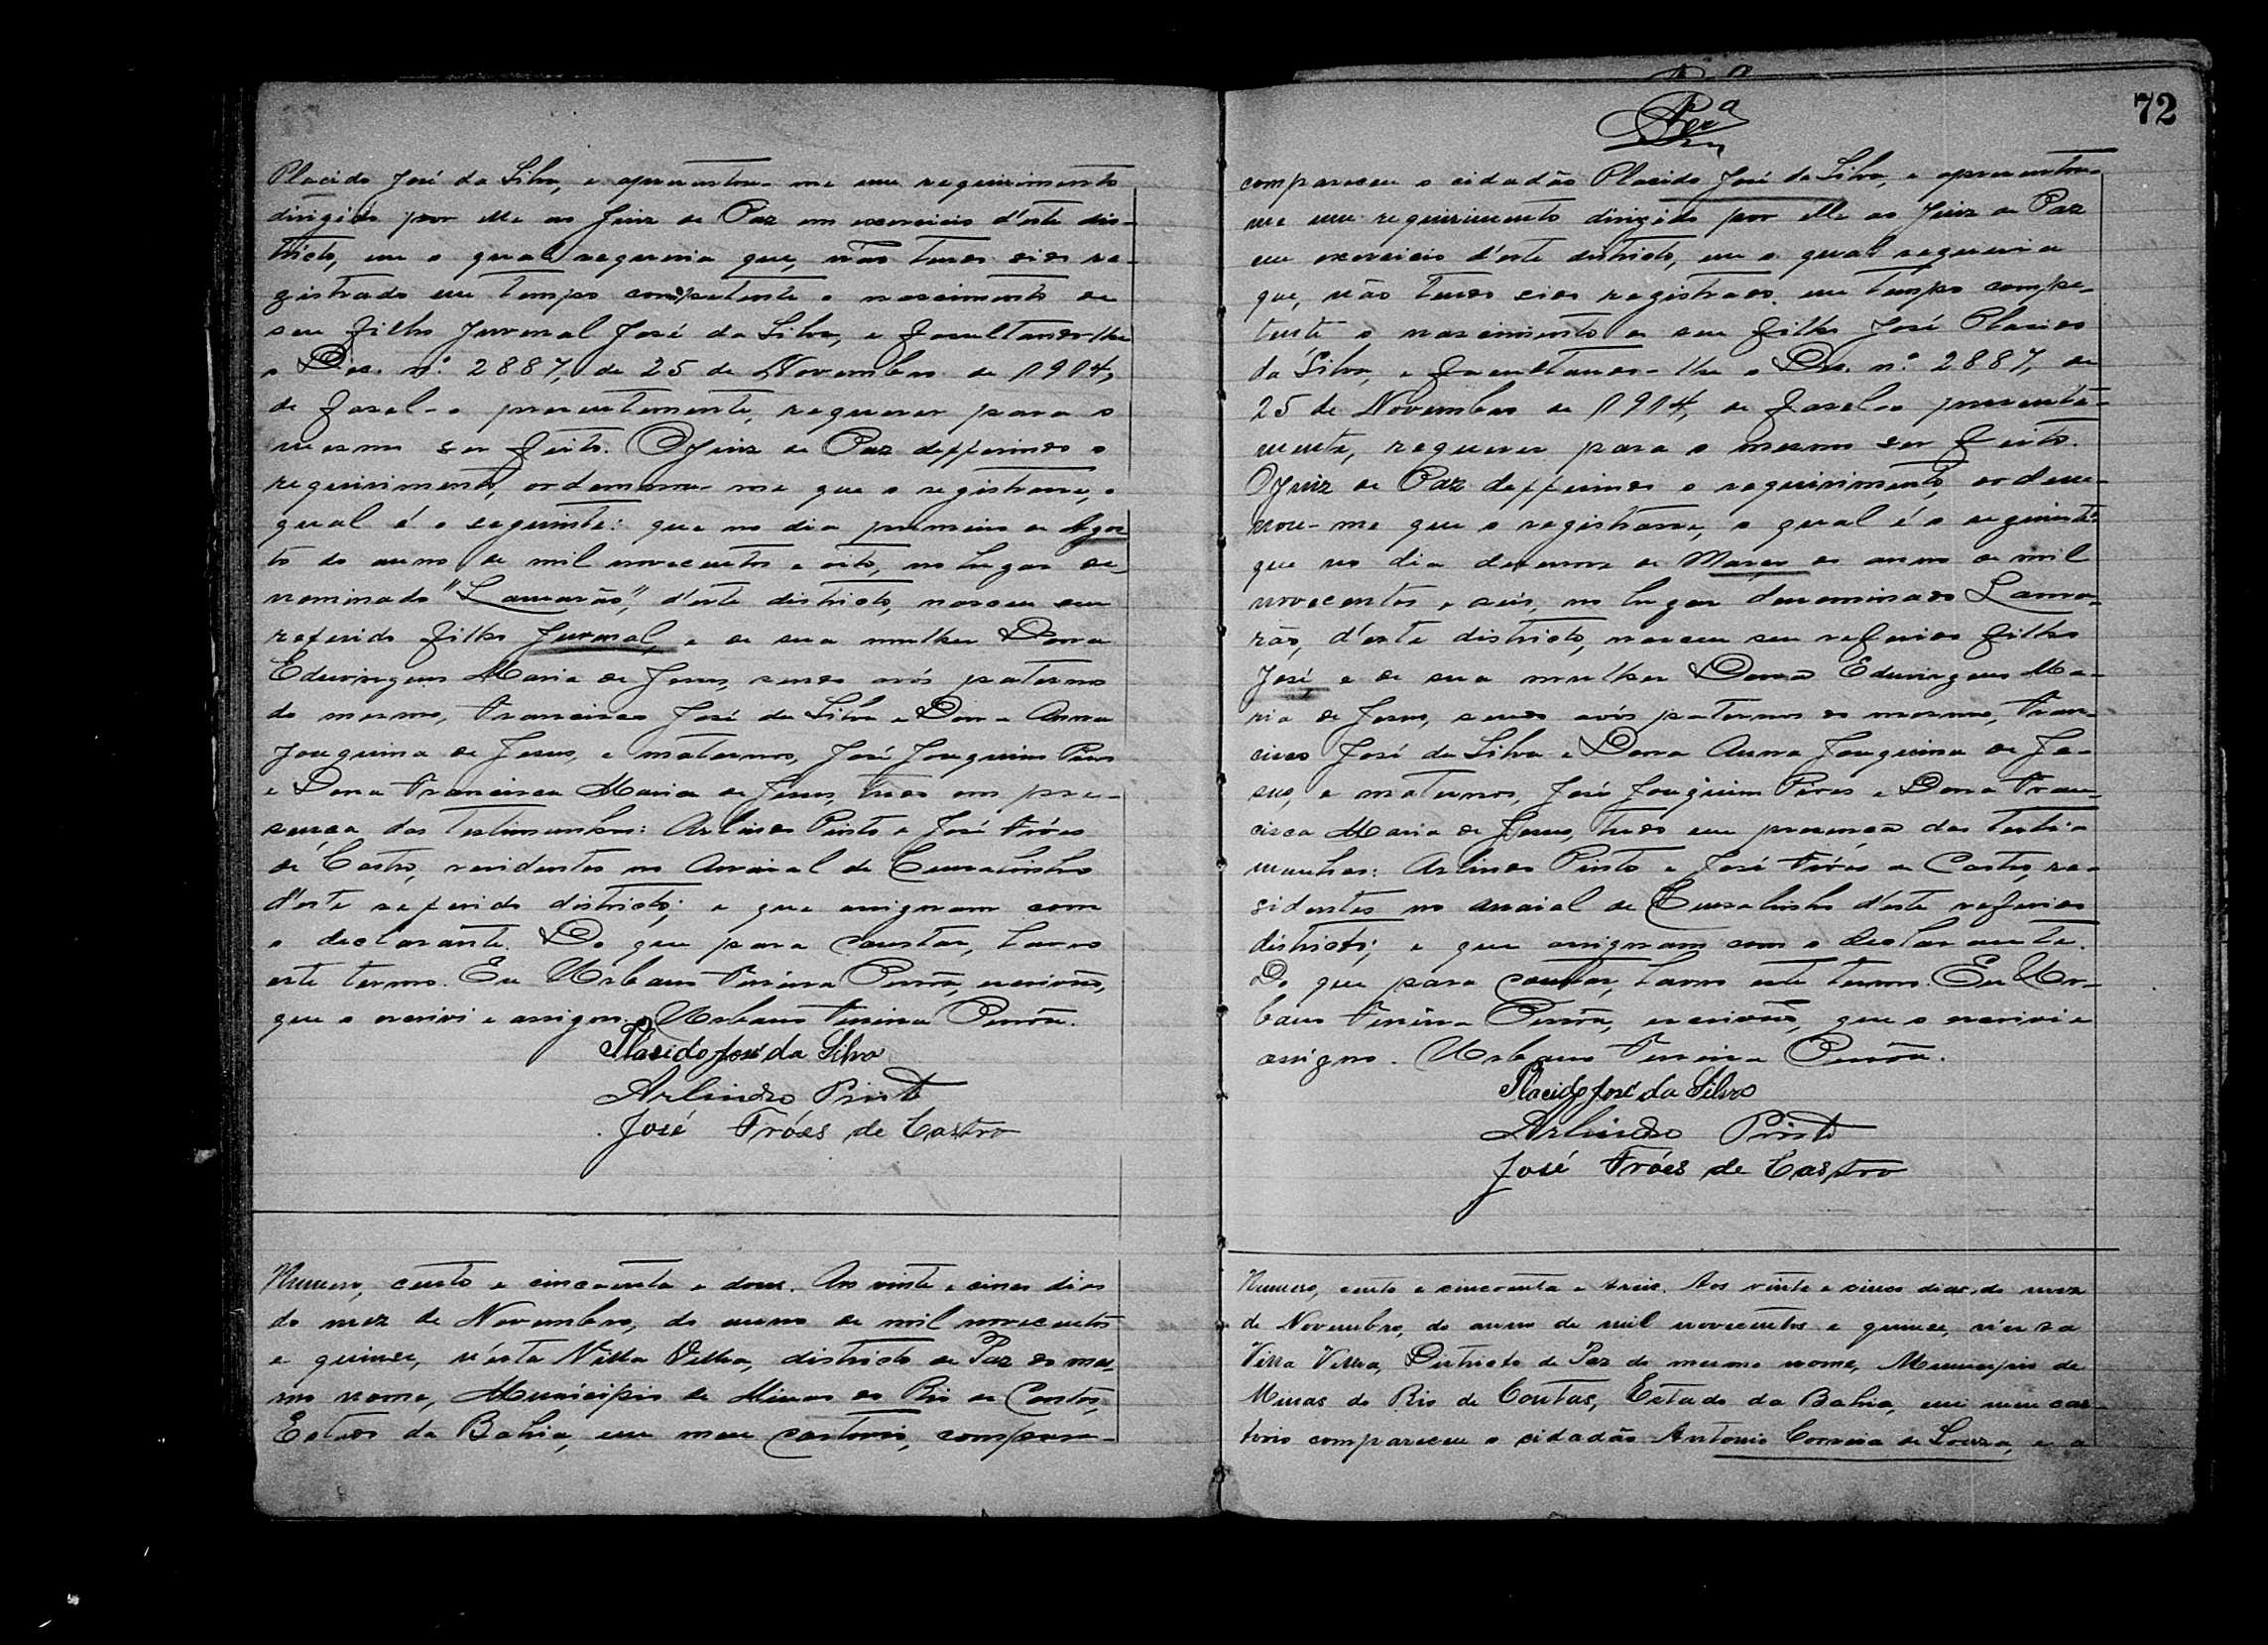 Placido José da Silva, e apresentou-me um requirimento
dirigido por elle ao Juiz de Paz em exercicio d'este dis-
tricto, em o qual requeria que, não tendo sido re-
gistrado em tempo competente o nascimento de
seu filho Juvenal José da Silva, e facultando-lhe
o Dec. nº. 2887, de 25 de Novembro de 1914,
de fazel-o presentemente, requerer para o
mesmo ser feito. O Juiz de Paz defferindo o
requirimento, ordenou-me que o registrasse, o
qual é o seguinte: que no dia primeiro de Agos
to do anno de mil novecentos e oito, no lugar de-
nominado "Lamarão", d'este districto, nasceu seu
referido filho Juvenal, e de sua mulher Dona
Eduvirgens Maria de Jesus, sendo avós paternos
do mesmo, Francisco José da Silva e Dona Anna
Joaquina de Jesus, e maternos, José Joaquim Pires
e Dona Francisca Maria de Jesus, tudo em pre-
sença das testimunhas: Arlindo Pinto e José Fróes
de Castro, residentes no Arraial de Curralinho
d'este referido districto; e que assignam com
o declarante. Do que para constar, lavro
este termo. Eu Urbano Pessôa, escrivão,
que o escrivi e assigno. Urbano Pessôa.
Placido José da Silva
Arlindo Pinto
José Fróes de Castro
Numero, cento e cincoenta e dous. Aos vinte e cinco dias
do mez de Novembro, do anno de mil novecentos
e quinze, n'esta Villa Velha, districto de Paz do mes-
mo nome, Municipio de Minas do Rio de Contas,
Estado da Bahia, em meu cartorio, compare-
72
compareceu o cidadão Placido José da Silva, e apresentou-
me um requirimento dirigido por elle ao Juiz de Paz
em exercicio d'este districto, em o qual requeria
que, não tendo sido registrado em tempo compe-
tente o nascimento de seu filho José Placido
da Silva, e facultando-lhe o Dec. nº. 2887, de
25 de Novembro de 1914, de fazel-o presente-
mente, requerer para o mesmo ser feito.
O Juiz de Paz defferindo o requirimento, orde-
nou-me que o registrasse, o qual é o seguinte:
que no dia dezenove de Março do anno de mil
novecentos e seis, no lugar denominado Lama-
rão, d'este districto, nasceu seu referido filho
José e de sua mulher Dona Eduvirgens Ma-
ria de Jesus, sendo avós paternos do mesmo, Fran-
cisco José da Silva e Dona Anna Joaquina de Je-
sus, e maternos, José Joaquim Pires e Dona Fran-
cisca Maria de Jesus, tudo em presença das testi-
munhas: Arlindo Pinto e José Fróes de Castro, re-
sidentes no arraial de Curralinho d'este referido
districto; e que assignam com o declarante.
Do que para constar, lavro este termo. Eu Ur-
bano Pessôa, escrivão, que o escrivi e
assigno. Urbano Pessôa.
Placido José da Silva
Arlindo Pinto
José Fróes de Castro
Numero, cento e cincoenta e treis. Aos vinte e cinco dias do mez
de Novembro, do anno de mil novecentos e quinze, n'esta
Villa Velha, Districto de Paz do mesmo nome, Municipio de
Minas do Rio de Contas, Estado da Bahia, em meu car-
torio compareceu o cidadão Antonio Correia de Souza, e a